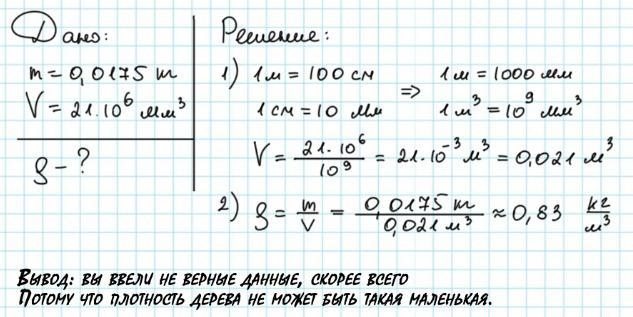 Дано:
m = 0,0175 т
V = 21·10⁶ мм³
ρ - ?
Решение:
1) 1м = 100 см ⇒ 1м = 1000 мм
1 см = 10 мм 1м³ = 10⁹ мм³
V = 21·10⁶ / 10⁹ = 21·10⁻³ м³ = 0,021 м³
2) ρ = m/V = 0,0175 т / 0,021 м³ ≈ 0,83 кг/м³
Вывод: вы ввели не верные данные, скорее всего
Потому что плотность дерева не может быть такая маленькая.